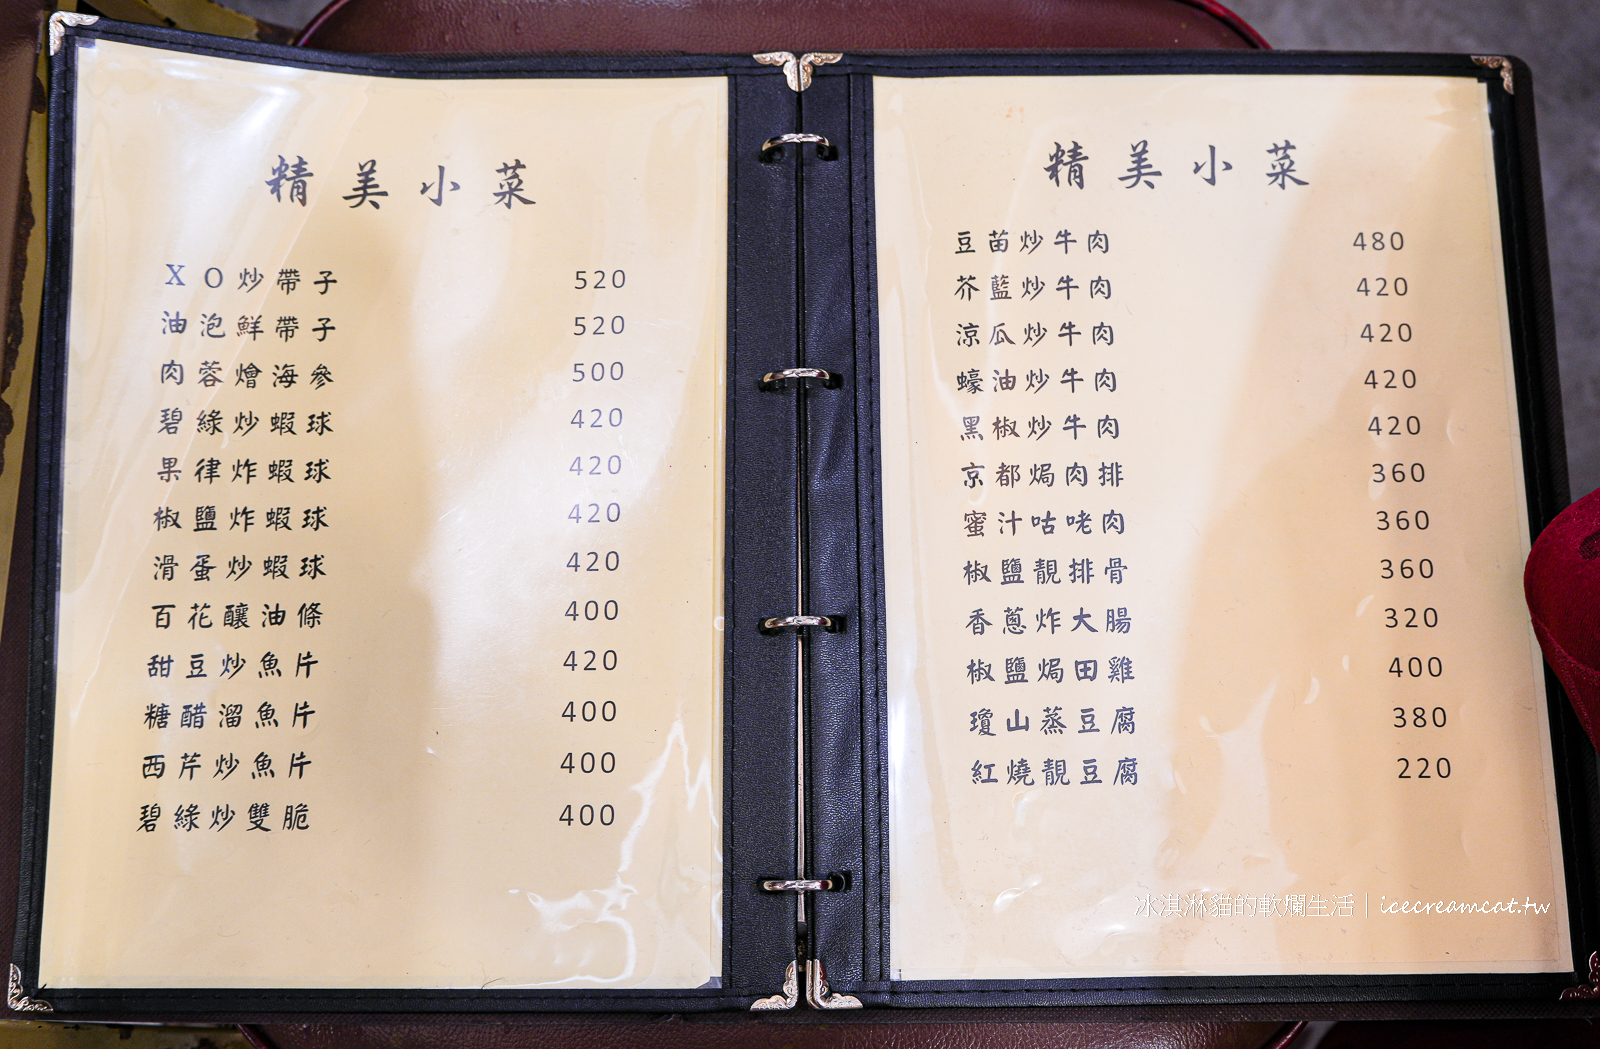 精美小菜
XO炒帶子 520
油泡鮮帶子 520
肉蓉燴海參 500
碧綠炒蝦球 420
果律炸蝦球 420
椒鹽炸蝦球 420
滑蛋炒蝦球 420
百花釀油條 400
甜豆炒魚片 420
糖醋溜魚片 400
西芹炒魚片 400
碧綠炒雙脆 400
精美小菜
豆苗炒牛肉 480
芥藍炒牛肉 420
涼瓜炒牛肉 420
蠔油炒牛肉 420
黑椒炒牛肉 420
京都焗肉排 360
蜜汁咕咾肉 360
椒鹽靚排骨 360
香蔥炸大腸 320
椒鹽焗田雞 400
瓊山蒸豆腐 380
紅燒靚豆腐 220
冰淇淋貓的軟爛生活|icecreamcat.tw